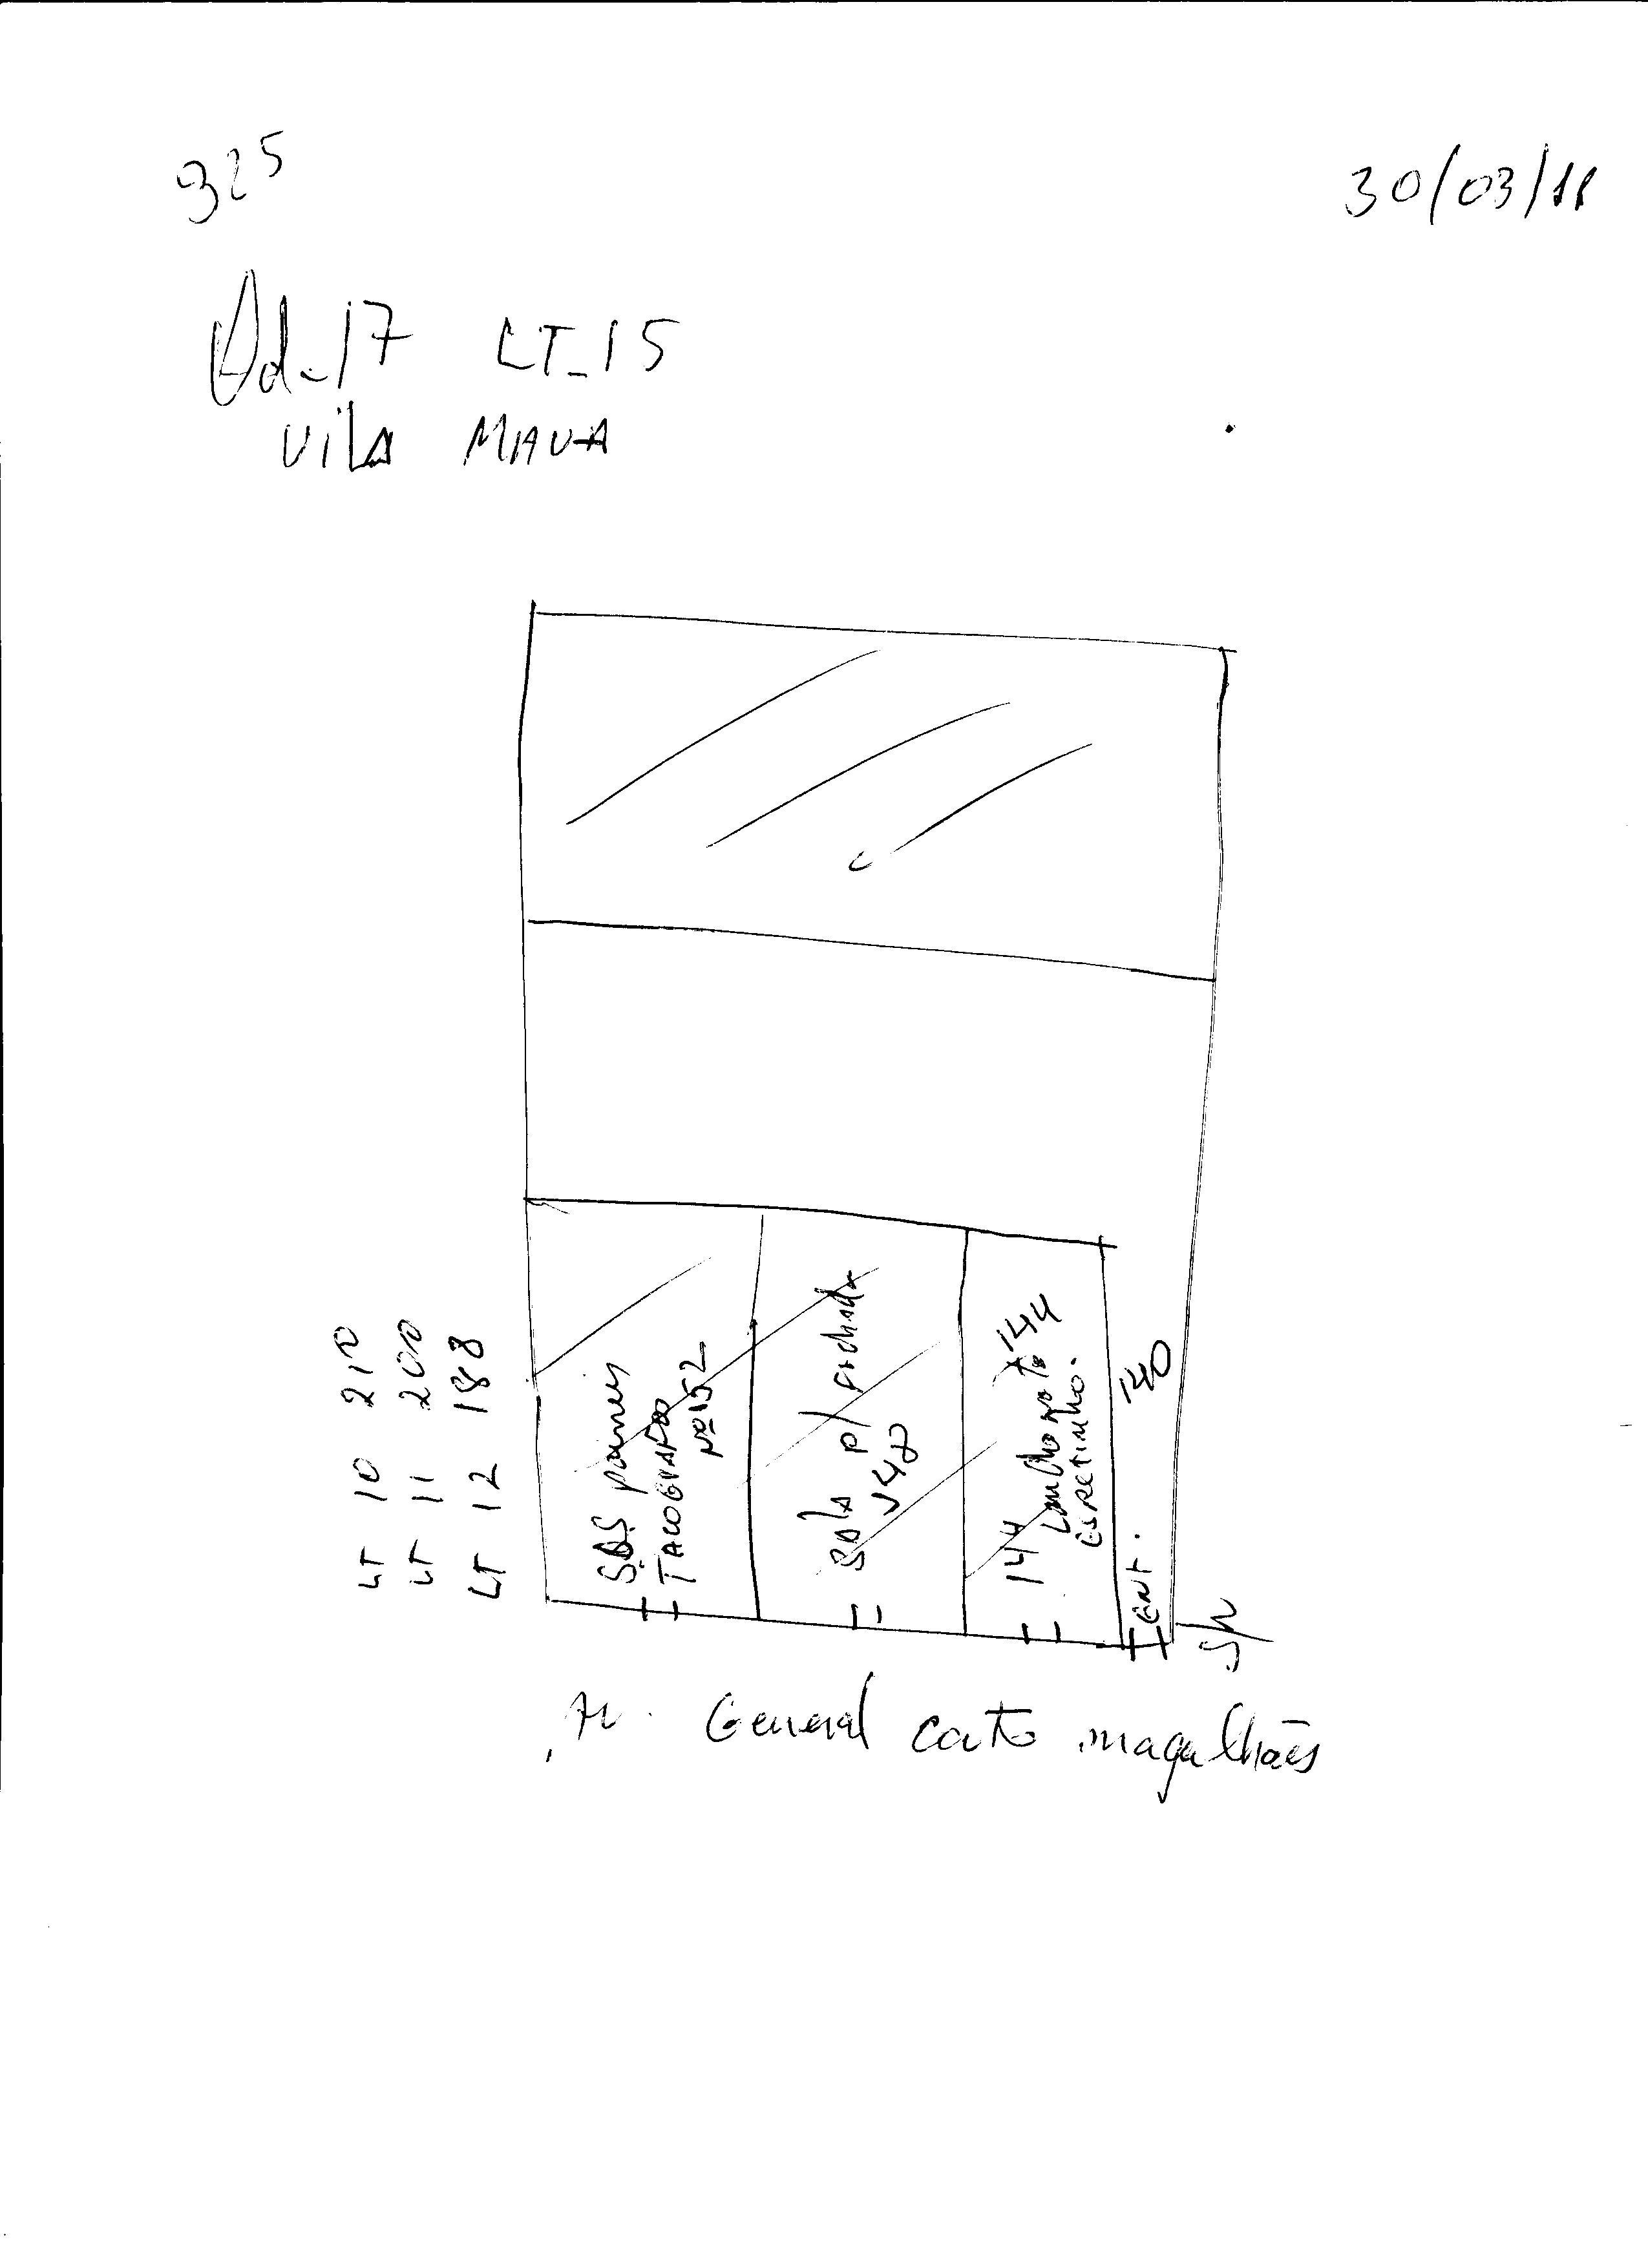 325
30/03/11
Qd-17 LT-15
Vila MAUA
LT 10 210
LT 11 200
LT 12 188
SOS
TACOGRAFOO
Nº 152
Sala p/ fechada
148
144
144
Lanchonete
Espetinho.
140
ENT.
S/N
Av. General couto magalhães